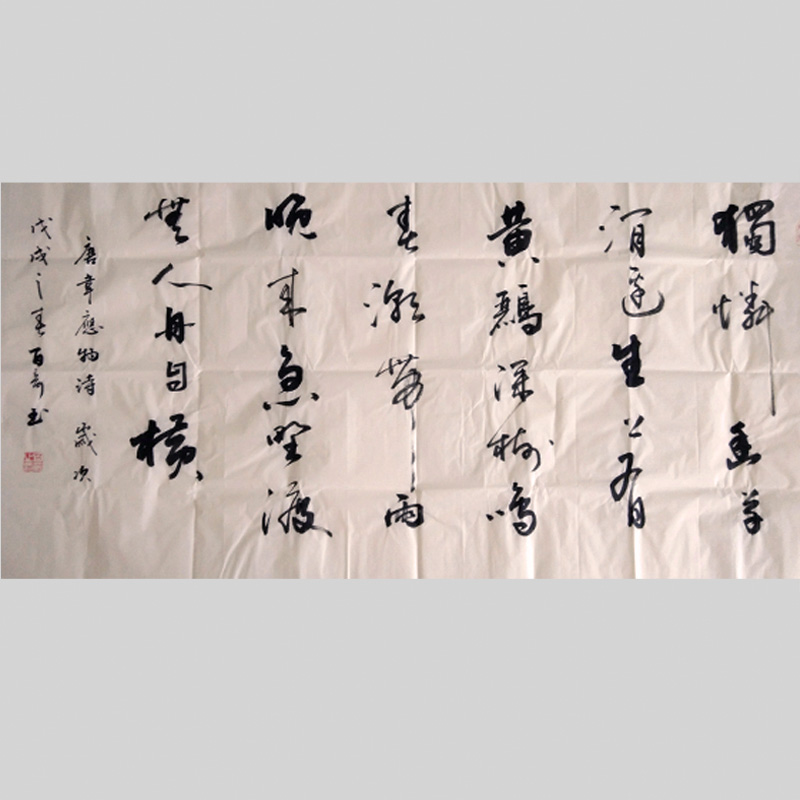 獨憐幽草
澗邊生上有
黄鸝深樹鳴
春潮帶雨
晚来急野渡
無人舟自横
唐韋應物诗 歲次
戊戌之春百书